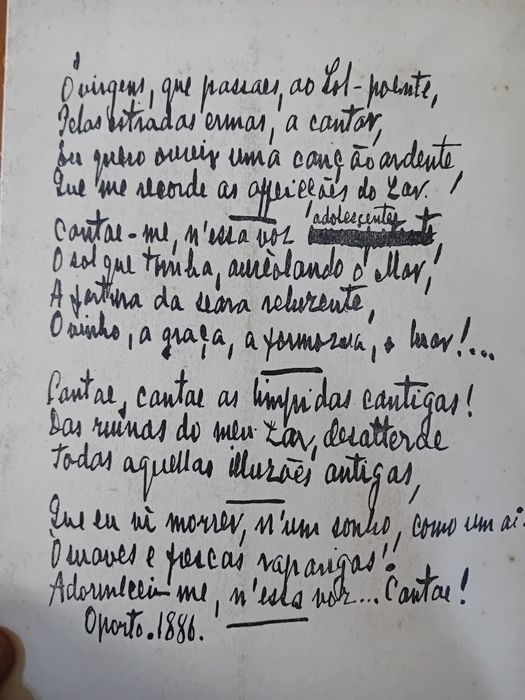 Ó virgens, que passaes, ao Sol-poente,
Pelas estradas ermas, a cantar,
Eu quero ouvir uma canção ardente
Que me recorde as affeições do Lar. !
Cantae-me, n'essa voz adolescente,
O sol que tomba, aureolando o Mar,
A fartura da seara reluzente,
O vinho, a graça, a formozura, o luar!...
Cantae, cantae as limpidas cantigas!
Das ruinas do meu Lar, desatterde
Todas aquellas illuzões antigas,
Que eu vi morrer, n'um sonho, como um ai.
Ó suaves e frescas raparigas!
Adormecei-me, n'essa voz... Cantae!
Oporto. 1886.